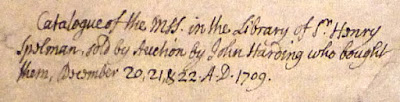 Catalogue of the MSS. in the Library of Sr. Henry
Spelman, sold by Auction by John Harding who bought
them, December 20, 21, & 22 A.D. 1709.